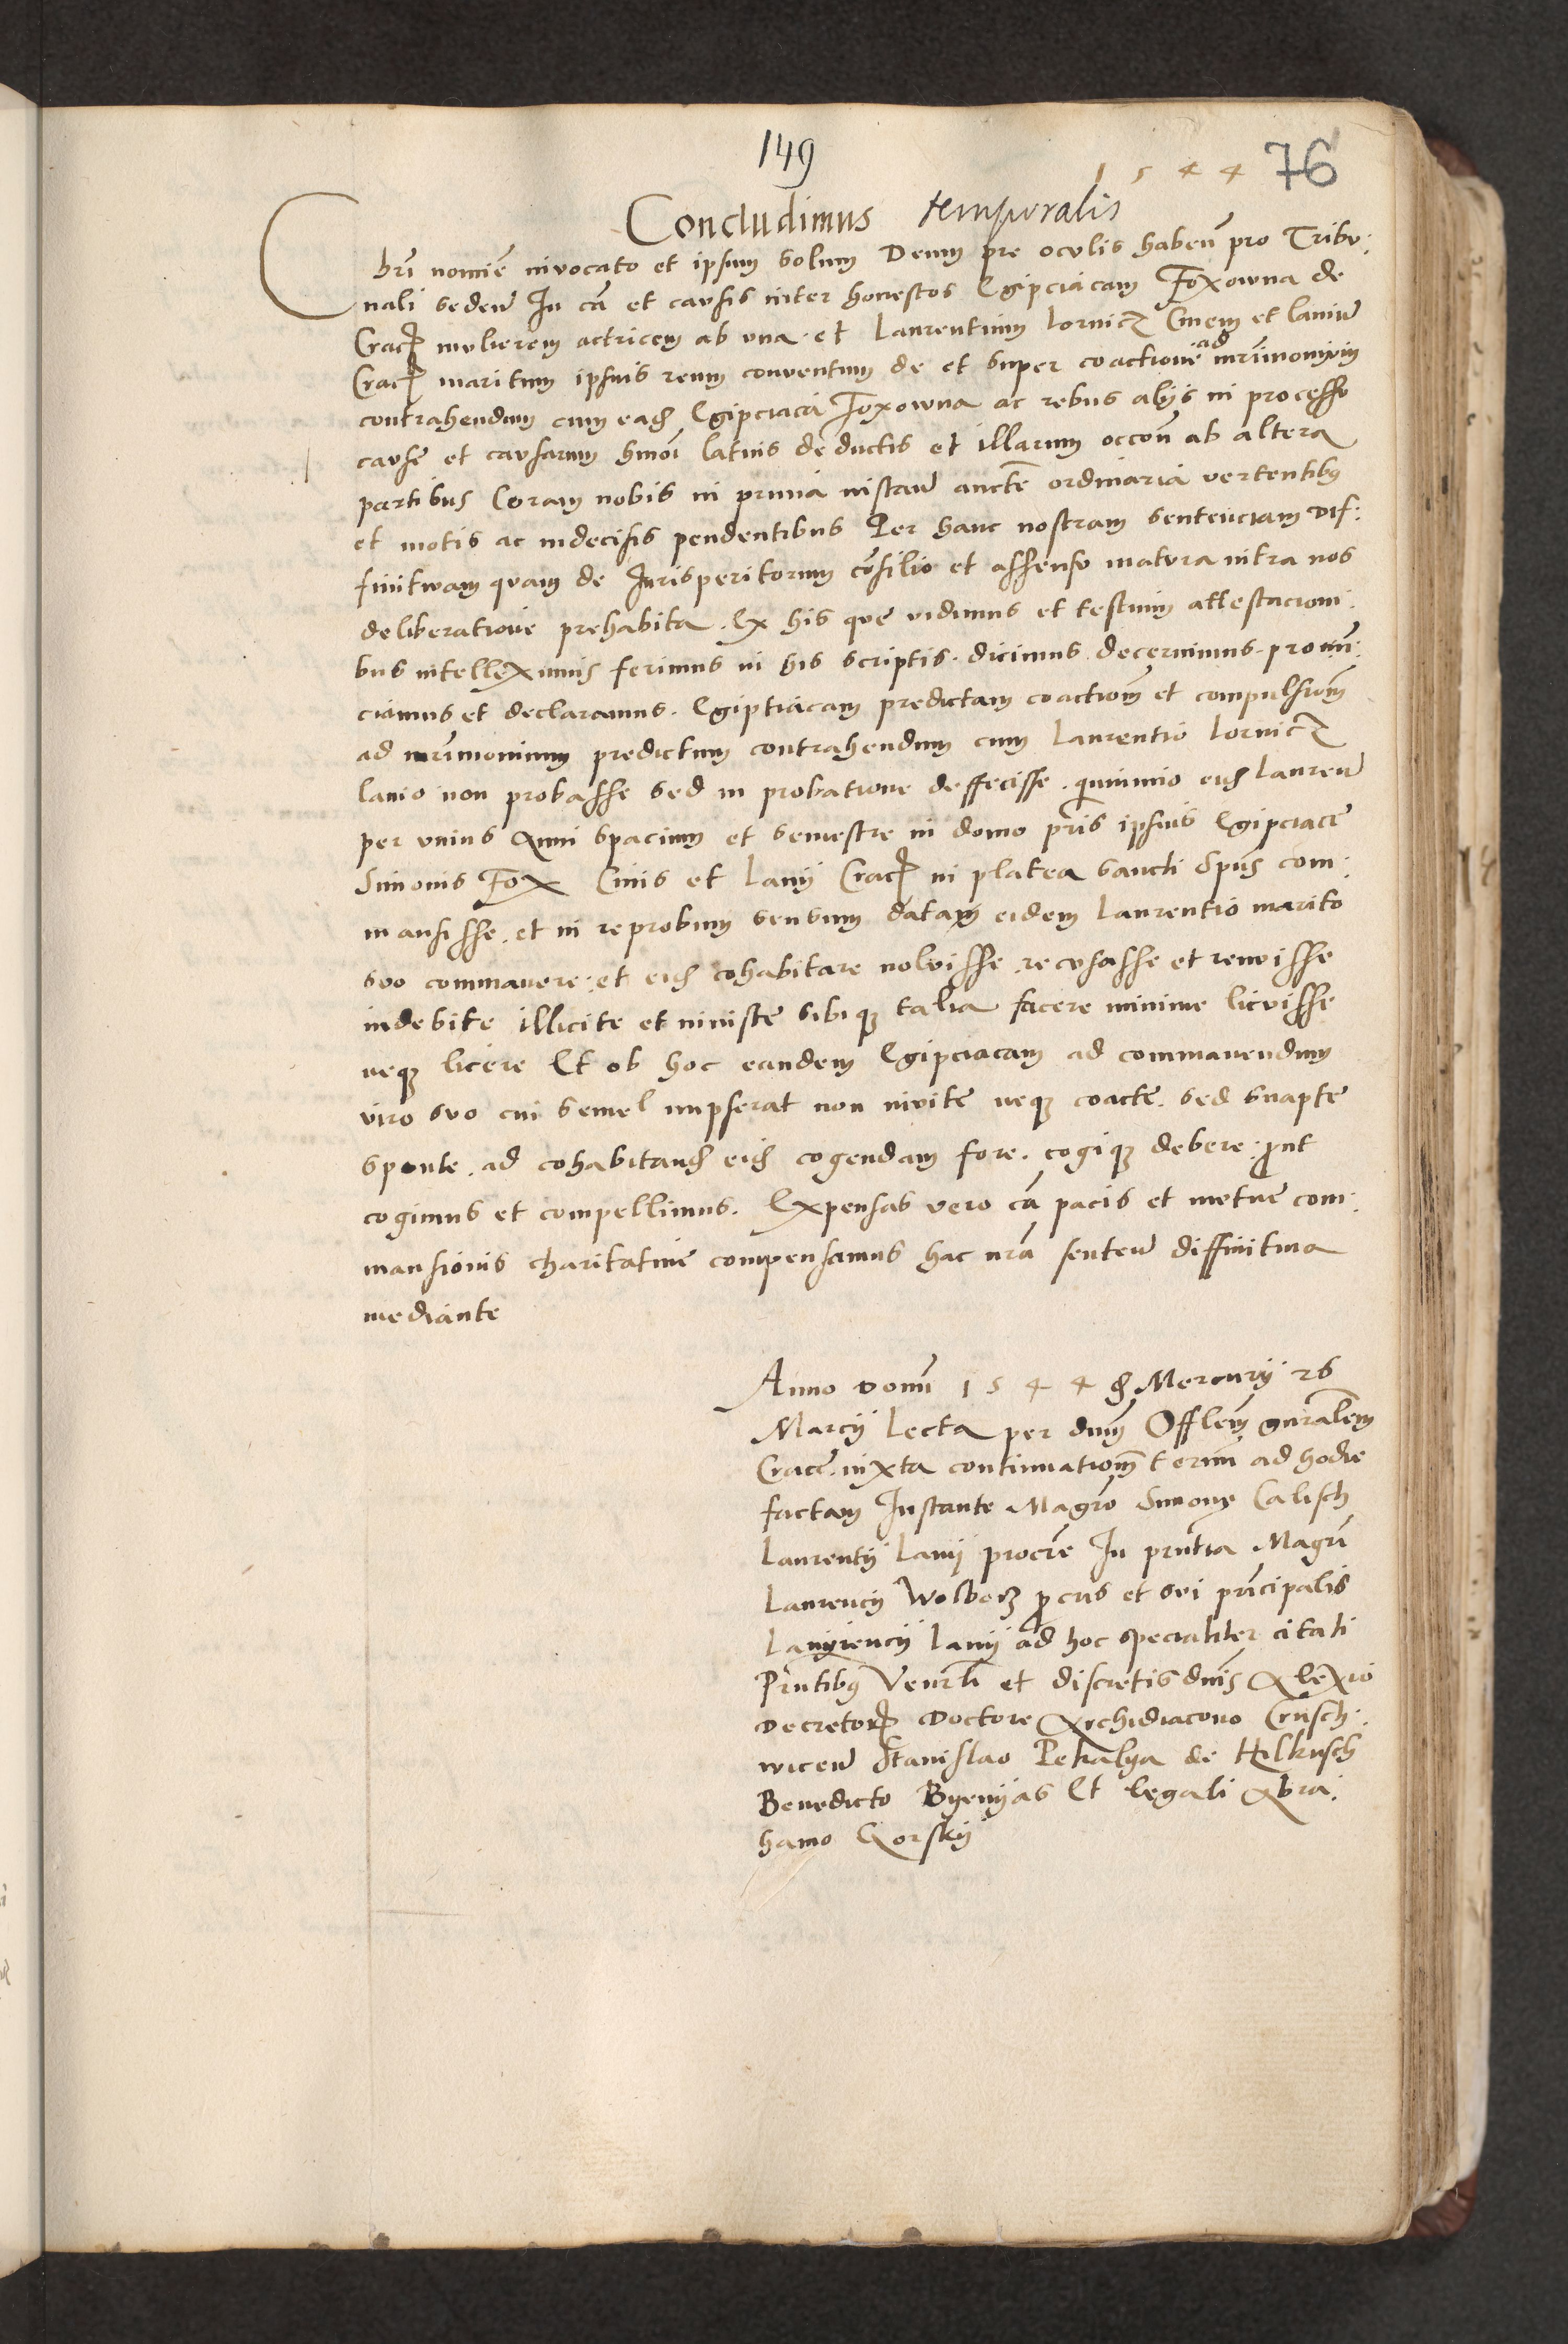 149
1544 76
Concludimus temporalis
Cbri nomie invocato et ipsum solum Deum pre oculis haben pro Tribu:
nali seden In ca et causis inter honestos Egipciacam Foxowna de
Crac mulierem actricem ab una et Laurentium Lornicz Civem et laniu
Crac maritum ipsius reum conventum de et super coactione ad mrimonium
contrahendum cum ead Egipciaca Foxowna ac rebus alijs in processu
cause et causarum hmoi latius deductis et illarum occon ab altera
partibus Coram nobis in prima instan aucte ordinaria vertentibus
et motis ac indecisis pendentibus Per hanc nostram sentenciam dif:
finitivam quam de Jurisperitorum consilio et assensu matura intra nos
deliberatione prehabita. Ex his que vidimus et testium attestacioni:
bus intelleximus ferimus in his scriptis. dicimus decernimus pronun:
ciamus et declaramus. Egiptiacam predictam coactiom et compulsiom
ad mrimonium predictum contrahendum cum Laurentio Lornicz
lanio non probasse sed in probatione deffecisse. quinimio eid Lauren
per unius Anni spacium et semestre in domo pris ipsius Egipciace
Simonis Fox Civis et Lanij Crac in platea Sancti Spus com:
mansisse. et in reprobum sensum datam eidem Laurentio marito
suo commanere. et eid cohabitare noluisse. recusasse et renuisse
indebite illicite et iniuste sibique talia facere minime licuisse
neque licere Et ob hoc eandem Egipciacam ad commanendum
viro suo cui semel nupserat non invite neque coacte. sed suapte
sponte. ad cohabitand eid cogendam fore. cogique debere. prout
cogimus et compellimus. Expensas vero ca pacis et mutue com:
mansionis charitative compensamus hac nra senten diffinitiva
mediante
Anno domi 1544 d Mercurij 26
Marcij Lecta per dnum Offlem gnralem
Cracc. iuxta continuatiom termi ad hodie
factam Instante Magro Simone Calisch
Laurentij Lanij procre In prntia Magri
Laurencij Wolborz procris et sui principalis
Laurencij lanij ad hoc specialiter citati
Prntibus Venrli et discretis dnis Alexio
decretor doctore Archidiacono Crusch:
wicen Stanislao Petralya de Hilkusch
Benedicto Byenyas Et legali Abra:
hamo Gorskij